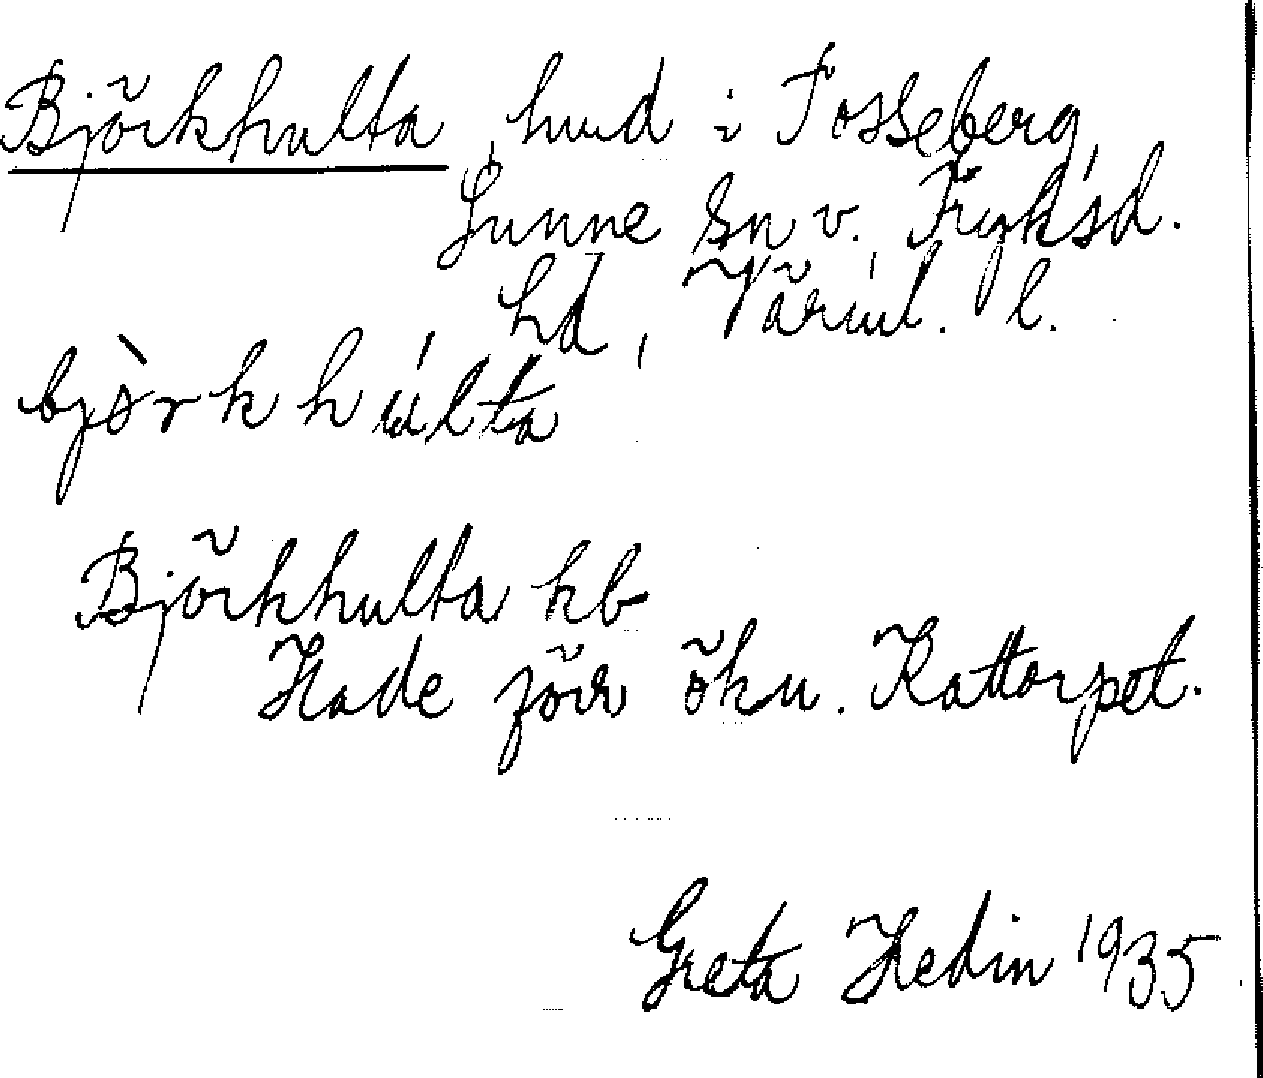 Björkhulta, hmd i Tosseberg,
Sunne sn v. Fryksd.
hd, Värml. l.
bjòrkhúlta
Björkhulta kb
Hade förr ökn. Kattorpet.
Greta Hedin 1935